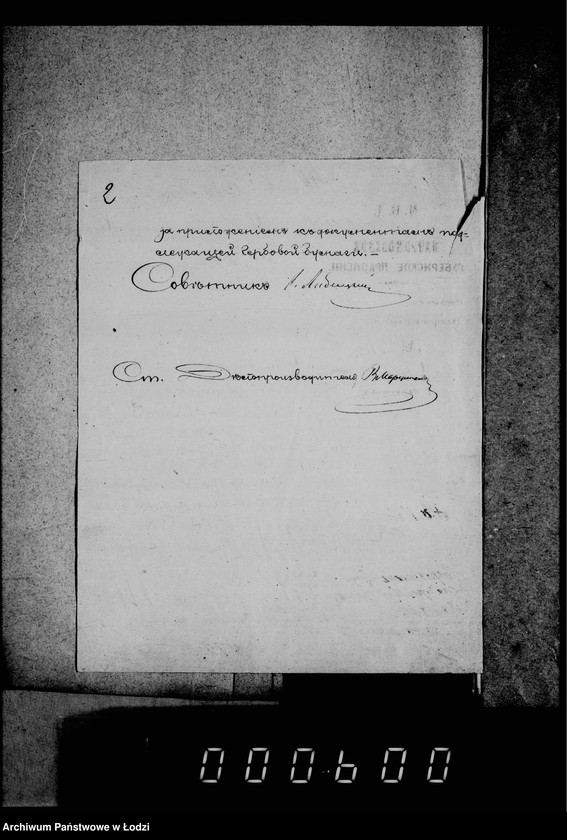 2
за приложеніемъ къ документамъ под-
лежащей гербовой бумаги. –
Совѣтникъ
Ст. Дѣлопроизводитель
000600
Archiwum Państwowe w Łodzi